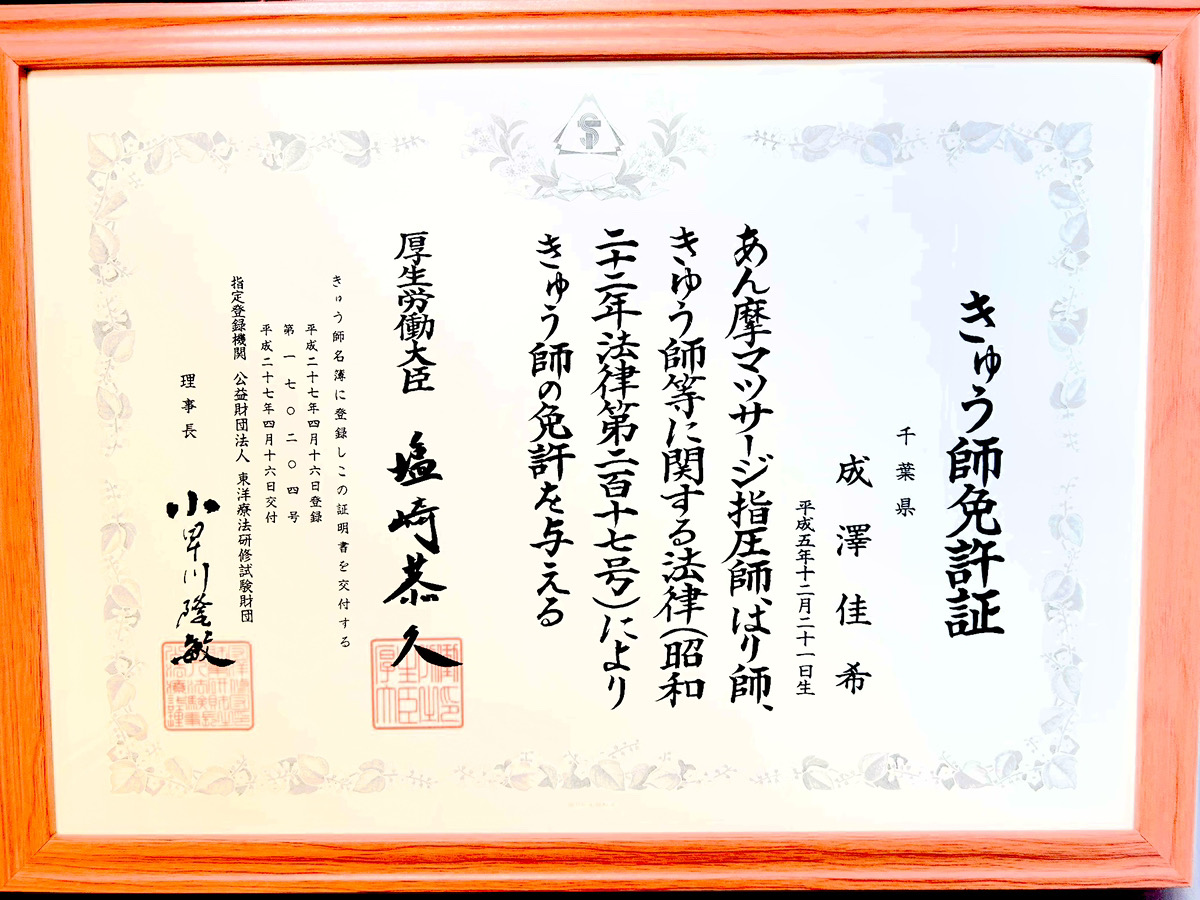 きゅう師免許証
千葉県
成澤佳希
平成五年十二月二十一日生
あん摩マツサージ指圧師、はり師、
きゆう師等に関する法律(昭和
二十二年法律第二百十七号)により
きゅう師の免許を与える
厚生労働大臣 塩崎恭久
きゅう師名簿に登録しこの証明書を交付する
平成二十七年四月十六日登録
第一七〇二〇四号
平成二十七年四月十六日交付
指定登録機関 公益財団法人 東洋療法研修試験財団
理事長 小早川隆敏